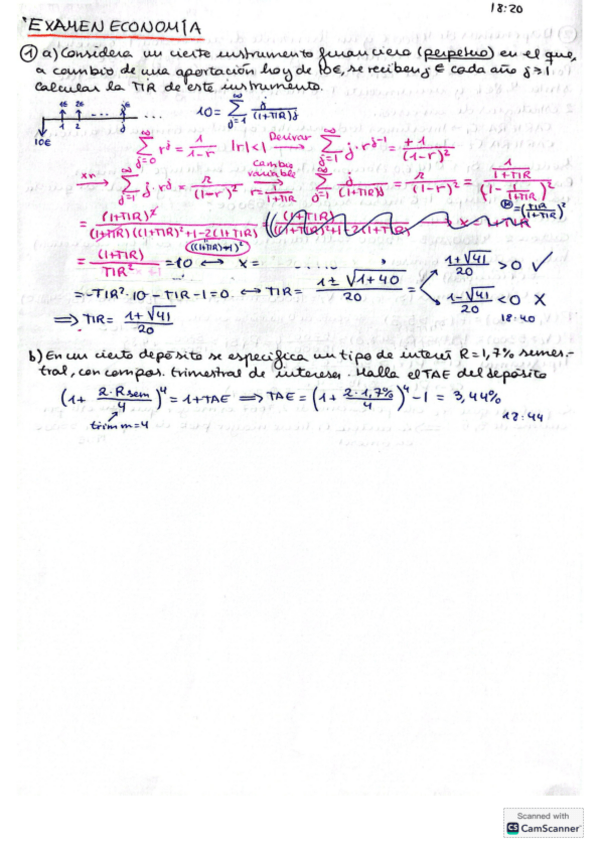 18:20
EXAMEN ECONOMÍA
① a) Considera un cierto instrumento financiero (perpetuo) en el que,
a cambio de una aportación hoy de 10€, se reciben j € cada año j ≥ 1.
Calcular la TIR de este instrumento.
1€ 2€ ... j€
1 2 j
10€
10 = ∑_{j=1}^{∞} j/(1+TIR)^j
∑_{j=0}^{∞} r^j = 1/(1-r) |r|<1 Derivar → ∑_{j=1}^{∞} j·r^{j-1} = +1/(1-r)^2
xr → ∑_{j=1}^{∞} j·r^j = r/(1-r)^2 cambio variable → r = 1/(1+TIR) ∑_{j=1}^{∞} j/(1+TIR)^j = r/(1-r)^2 = (1/(1+TIR))/(1 - 1/(1+TIR))^2
= (TIR/(1+TIR))^2
= (1+TIR)^2/((1+TIR)((1+TIR)^2+1-2(1+TIR))
((1+TIR)-1)^2
= (1+TIR)/TIR^2 = 10 ⟷ x = ......
= -TIR^2·10 - TIR - 1 = 0 ⟷ TIR = (1 ± √(1+40))/20 = < (1+√41)/20 > 0 ✓
(1-√41)/20 < 0 X
⟹ TIR = (1+√41)/20
18:40
b) En un cierto depósito se especifica un tipo de interés R = 1,7% semes-
tral, con compos. trimestral de intereses. Halla el TAE del depósito
(1 + 2·Rsem/4)^4 = 1+TAE ⟹ TAE = (1 + 2·1,7%/4)^4 - 1 = 3,44%
trim m=4
12:44
Scanned with
CS CamScanner